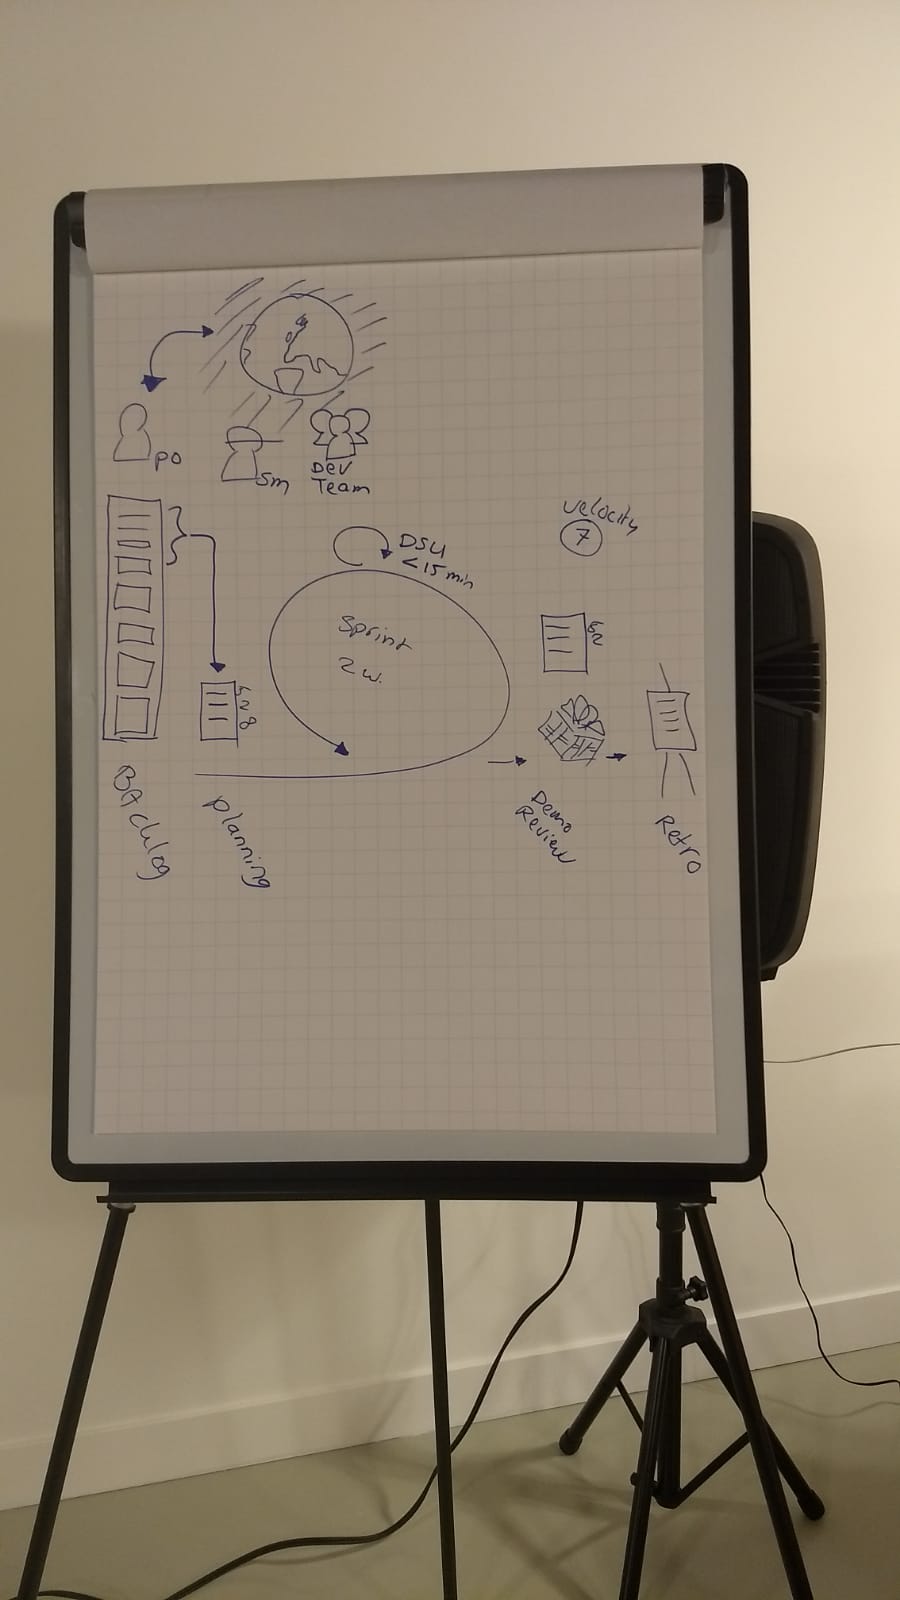 PO
SM
Dev
Team
velocity
7
DSU
<15 min
Sprint
2 w.
5
2
8
5
2
BAcklog
planning
Demo
Review
Retro